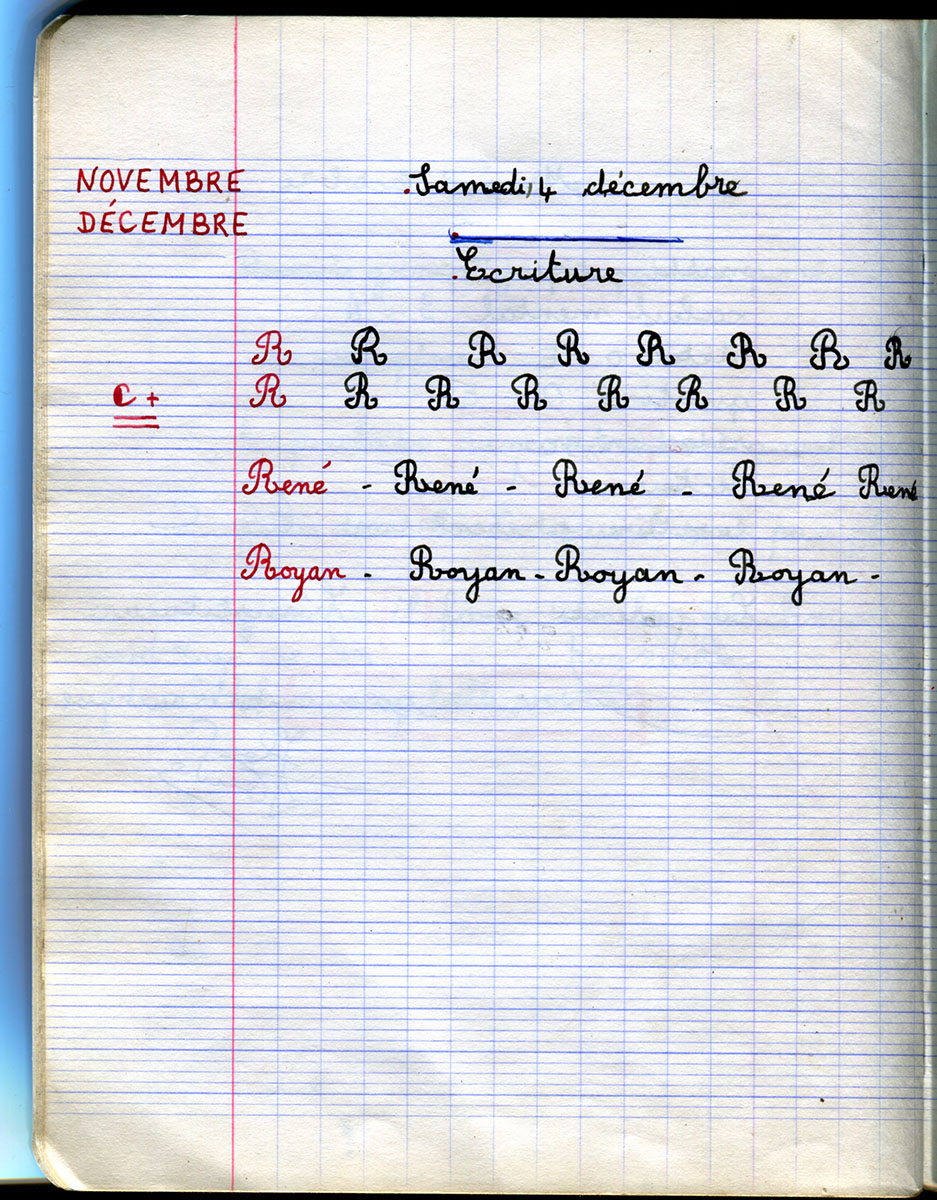 NOVEMBRE
DÉCEMBRE
Samedi, 4 décembre
Ecriture
R R R R R R R R
C + R R R R R R R R
René - René - René - René René
Royan - Royan - Royan - Royan -